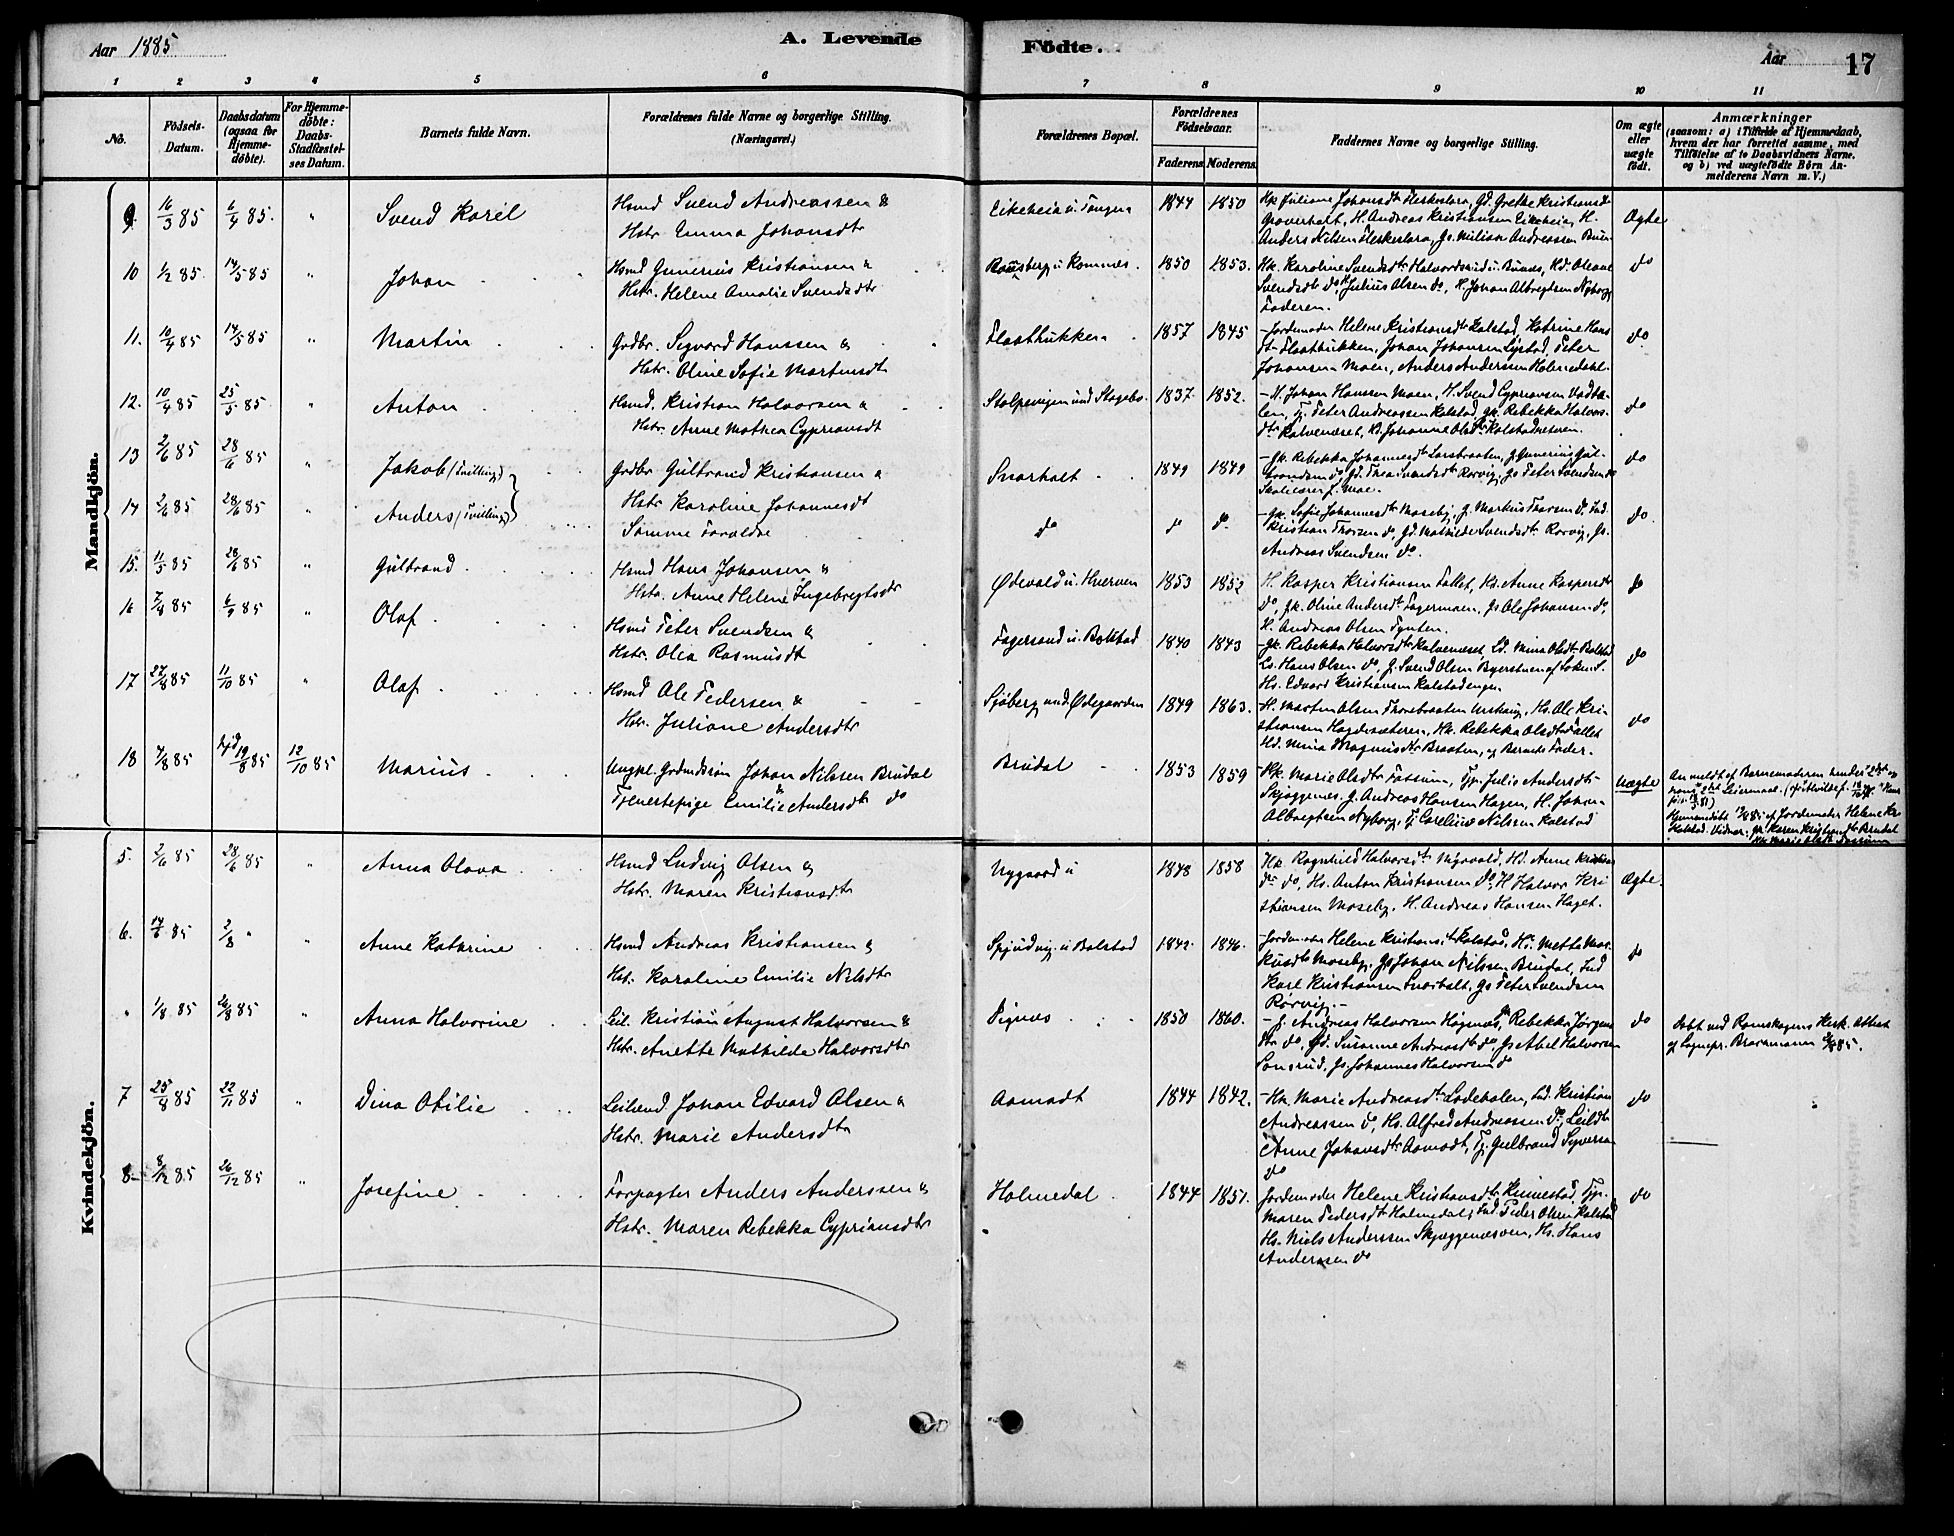 Aar 1885 A. Levende Födte. Aar 17
1 2 3 4 5 6 7 8 9 10 11
No.
Födsels-Datum.
Daabsdatum (ogsaa for Hjemme-döbte).
For Hjemme-döbte: Daabs-Stadfæstel-ses Datum.
Barnets fulde Navn.
Forældrenes fulde Navne og borgerlige Stilling. (Næringsvei.)
Forældrenes Bopæl.
Forældrenes Födselsaar.
Faderens. Moderens.
Faddernes Navne og borgerlige Stilling.
Om ægte eller uægte födt.
Anmærkninger
(saasom: a) i Tilfælde af Hjemmedaab,
hvem der har forrettet samme, med
Tilföielse af to Daabsvidners Navne.
og b) ved uægtefödte Börn An-
melderens Navn m. V.)
Mandkjön.
9. 16/3 85 6/4 85. " Svend Karel
Hsmd Svend Andreassen &
Hstr. Emma Johansdtr
Eikeheia u. Tangen 1844 1850
Anders Nilsen Heskeslara, Gs. Milian Andreassen Buer
Ægte
10 1/2 85. 14/5 85 " Johan
Hsmd Gunerius Kristiansen &
Hstr. Helene Amalie Svendsdtr
1850 1853.
Svendsdtr do, Julius Olsen do, H. Johan Albregtsen Nyborg,
Faderen.
do
11. 10/4 85 14/5 85 " Martin
Grdbr. Sigvard Hanssen &
Hstr. Oline Sofie Martinsdt
Flaathukken 1857 1845
- Jordemoder Helene Kristiansdtr Kolstad, Katrine Hans
dtr Flaathukken, Johan Johansen Lystad, Peter
Johansen Moen, Anders Andersen Holmedahl.
do
12. 10/4 85 25/5 85 " Anton
Hsmd. Kristian Halvorsen &
Hstr. Anne Mathea Cypriansdt
1837 1852.
- H. Johan Hansen Moen, H. Svend Cypriansen
Tj. Peter Andreassen Kolstad, Gk. Rebekka Halvors
dtr Kalvenæset, K. Johanne Olsdtr Kolstadnesven.
do
13 2/6 85 28/6 85 " Jakob (Tvilling)
Grdbr Gulbrand Kristiansen &
Hstr Karoline Johannesdt
Snarholt 1849 1849
do
14 2/6 85 28/6 85 " Anders (Tvilling)
Samme Foreldre
do do do
- Gk. Sofie Johannesdtr Moseby, G. Markus Thorsen do, Ind.
Kristian Thorsen do, Gd. Mathilde Svendsdtr Rørvig, Gs.
Andreas Svendsen do.
do.
15. 11/5 85 28/6 85 " Gulbrand
Hsmd Hans Johansen &
Hstr. Anne Helene Ingebregtsdtr
Ødevald u. Hverven 1853 1852
H. Kasper Kristiansen Fallet, Ks. Anne Kaspersdtr
do, Gk. Oline Andersdtr Fagermoen, Gs Ole Johansen do,
H. Andreas Olsen Tynten.
do
16 6/9 85 " Olaf
Hsmd Peter Svendsen &
Hstr. Olea Rasmusdt
Fagersand u. Bolstad 1840 1843
- Gk. Rebekka Halvorsdtr Kalvenæset, Ld. Mina Olsdtr Bolstad
Ls. Hans Olsen do, G. Svend Olsen
Hs. Edvard Kristiansen Kolstadengen.
do
17 27/8 85 11/10 85 " Olaf
Hsmd Ole Pedersen &
Hstr. Juliane Andersdtr
Sjöberg und. Ødegaarden 1849 1863.
H. Martin Olsen Thorebraaten Urskoug, Hs. Ole Kri-
stiansen Hagdesæteren, Hk. Rebekka Olsdtr Fallet
Hd. Mina Magnusdtr Braaten, og Barnets Fader.
do
18 7/8 85 hjd 19/8 85 12/10 85 Marius
Ungkl. Grdmdssøn Johan Nilsen Brudal
& Tjenestepige Emilie Andersdtr do
Brudal 1853 1859
- Hk. Marie Olsdtr Fossum, Tp. Julie Andersdtr
Skjæggenes. G. Andreas Hansen Hagen, H. Johan
Albregtsen Nyborg, Tj. Carelius Nilssen Kolstad
Uægte
Anmeldt af Barnemoderen hendes 2det og
hans 2det Leiermaal.
Hjemmedöbt 19/8 85 af Jordemoder Helene Kr.
Kolstad. Vidner: Gk. Karen Kristiansdtr Brudal
Hk. Marie Olsdtr Fossum
Kvindekjön.
5. 2/6 85 28/6 85 " Anna Olava
Hsmd Ludvig Olsen &
Hstr. Maren Kristiansdtr
Nygaard u 1848 1858
Hk. Ragnhild Halvorsdtr Myrvold, Hd. Anne Kristians
dtr do, Hs. Anton Kristiansen do, H Halvor Kri
stiansen Moseby, H. Andreas Hansen Haget.
Ægte.
6. 14/6 85 2/8 " " Anne Kathrine
Hsmd Andreas Kristiansen &
Hst. Karoline Emilie Nilsdtr
Spjudvig u Bolstad 1842. 1846.
- Jordemoder Helene Kristiansdtr Kolstad, Hs. Mette Mar-
kusdtr Moseby, Gs Johan Nilssen Brudal, Ind
Karl Kristiansen Snarholt, Gs Peter Svendsen
Rørvig. -
do
" 1/8 85 26/8 85 " Anna Halvorine
Leil. Kristian August Halvorsen &
Hstr. Anette Mathilde Halvorsdtr
Tignes 1850 1860.
- G. Andreas Halvorsen Høgenes, Gk Rebekka Jørgens
dtr do, Gd. Susanne Andreasdtr do Gs Abel Halvorsen
Sonsrud, Gs. Johannes Halvorsen do
do
Døbt ved Romskogens Kirk. Attest
af Sognepr. Brochmann
7 25/8 85 22/11 85 " Dina Otilie
Leilænd. Johan Edvard Olsen &
Hstr. Marie Andersdtr
Aamodt 1844 1842.
- Hk. Marie Andreasdtr Ladeholen, Ind. Kristian
Andreassen do, Hs. Alfred Andreassen do, Leildtr
Anne Johansdtr Aamodt, Tj. Gulbrand Syversen
do
do
8 8/12 85 26/12 85 " Josefine
Forpagter Anders Anderssen &
Hstr. Maren Rebekka Cypriansdtr
Holmedal 1844 1851.
Jordemoder Helene Kristiansdtr Kinnestad, Tp.
Maren Pedersdtr Holmedal, Ind Peder Olsen Kolstad
Hs. Niels Anderssen Skjæggenæsven, Hs. Hans
Anderssen do
do